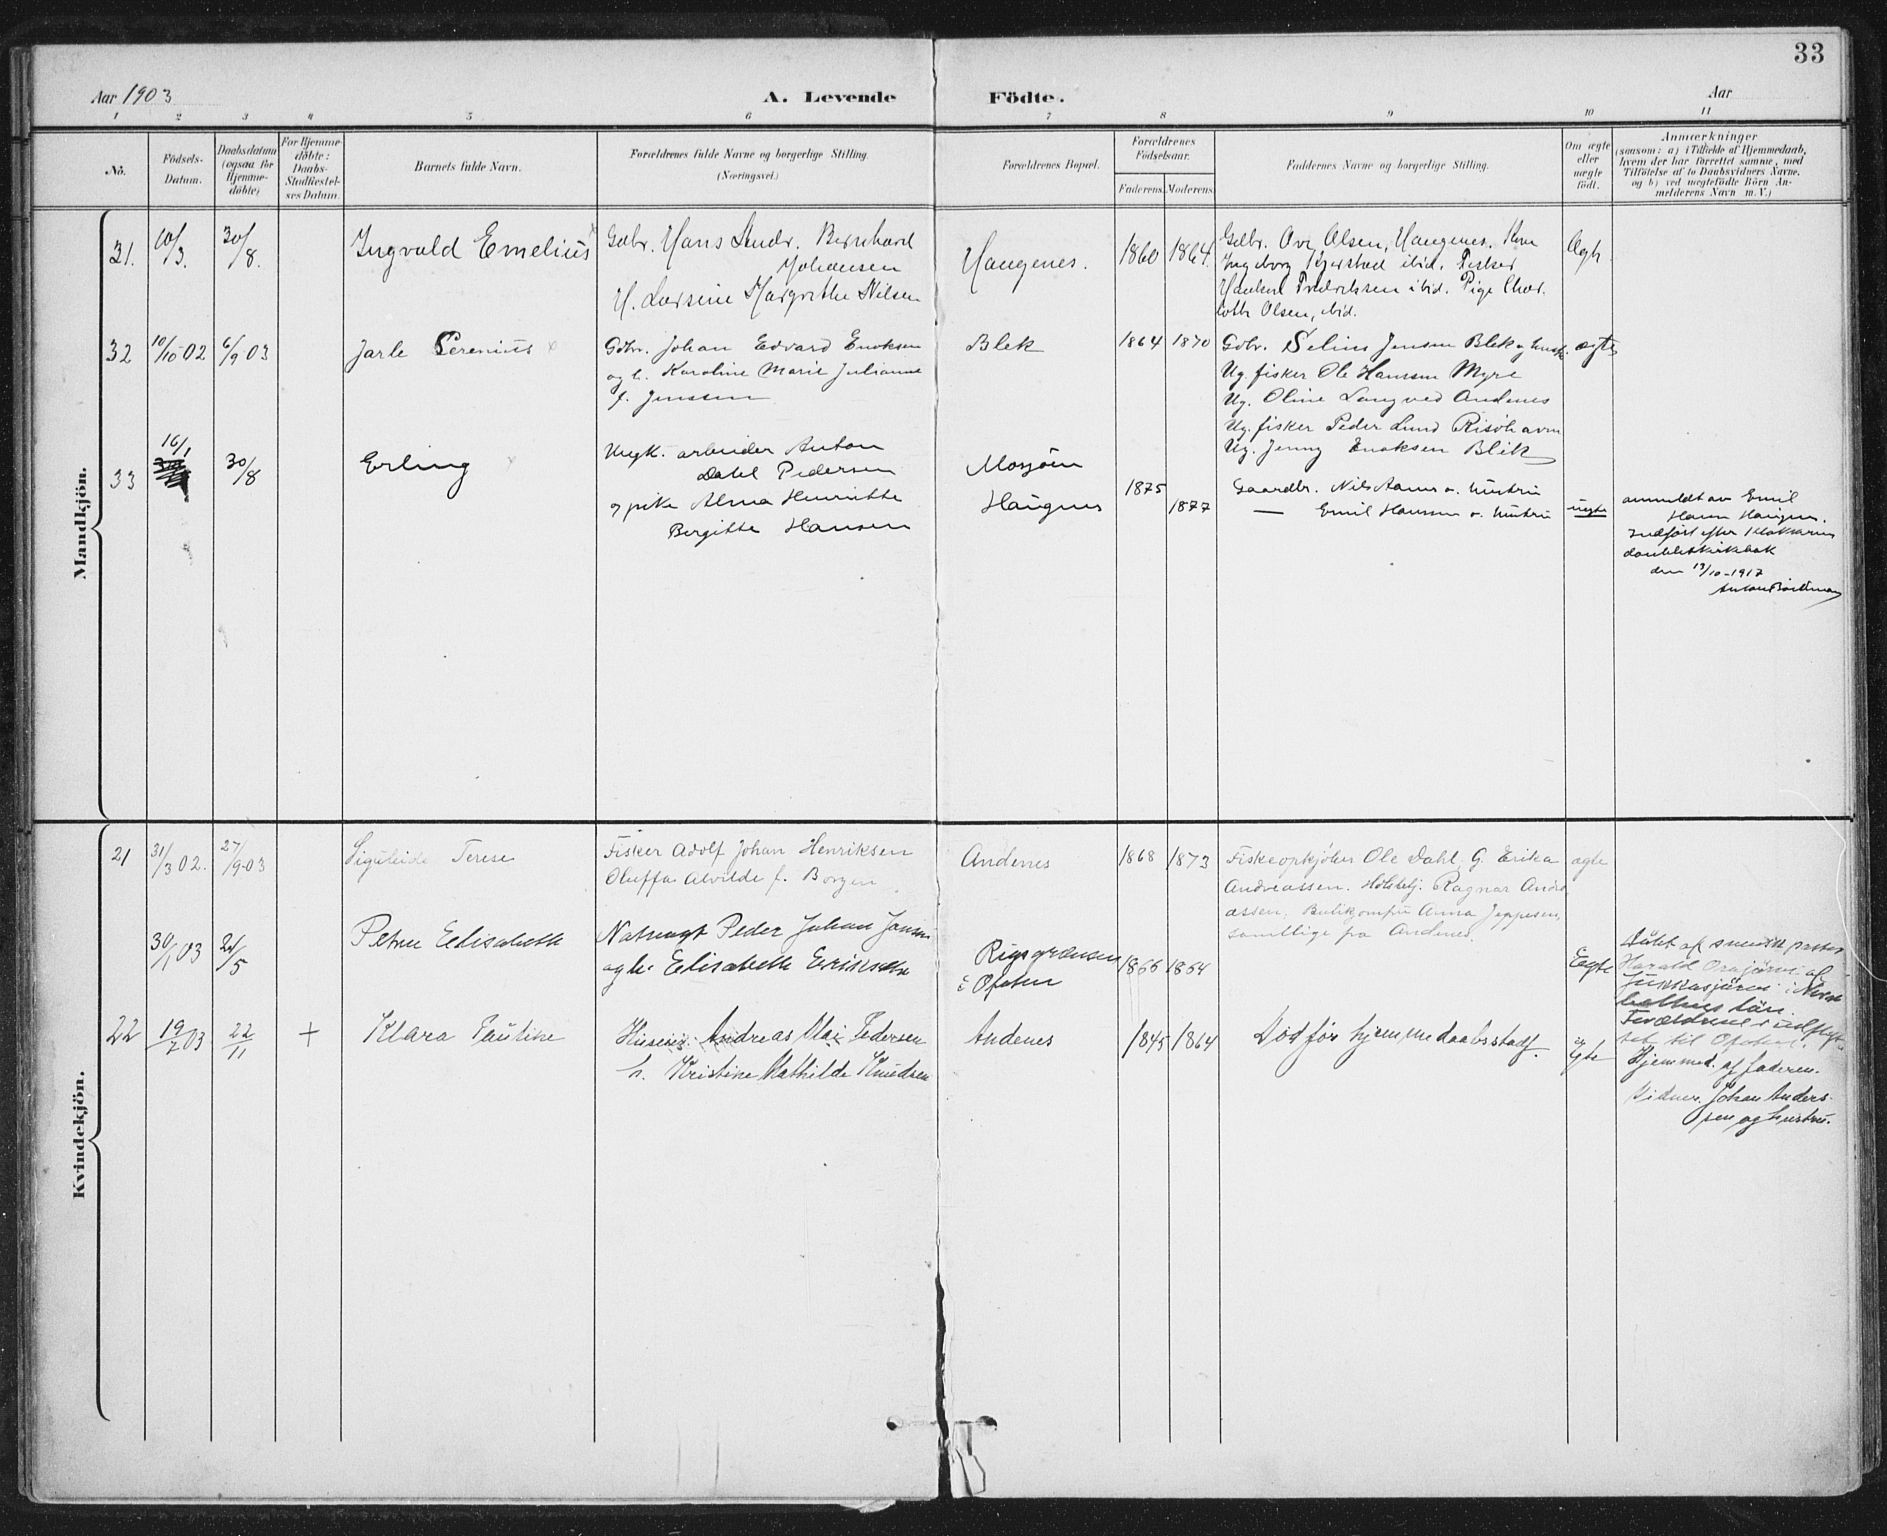 33
Aar 1903
A. Levende Födte.
Aar
1 2 3 4 5 6 7 8 9 10 11
No.
Födsels-
Datum.
Daabsdatum
(ogsaa for
Hjemme-
döbte)
For Hjemme-
döbte:
Daabs-
Stadfestel-
ses Datum.
Barnets fulde Navn.
Forældrenes fulde Navne og borgerlige Stilling.
(Næringsvei.)
Forældrenes Bopæl.
Forældrenes
Födselsaar.
Faderens Moderens
Faddernes Navne og borgerlige Stilling.
Om ægte
eller
uægte
födt.
Anmærkninger
(saasom: a) i Tilfælde af Hjemmedaab,
hvem der har forrettet samme, med
Tilföielse af to Daabsvidners Navne,
og b) ved uægtefödte Börn An-
melderens Navn m. V.)
Mandkjön.
31.
10/3.
30/8.
Ingvald Emelius
Gdbr. Hans Andr. Bernhard
Johansen
H. Larsine Margrethe Nilsen
Haugenes.
1860 1864.
Gdbr. Ove Olsen, Haugenes. Kone
Ingeborg Kjerstad ibid. Fisker
Haakon Fredriksen ibid. Pige Char.
lotte Olsen, ibid.
Ægte
32
10/10 02
6/9 03
Jarle Serenius
Gdbr. Johan Edvard Enoksen
og h. Karoline Marie Julianne
f. Jenssen
Blek
1864 1870
Gdbr. Selius Jensen Blek og hustr.
Ug. fisker Ole Hanssen Myre
Ug. Oline Langved Andenes
Ug. fisker Peder Lund Risöhavn
Ug. Jenny Enoksen Blik
ægte
33
16/1
30/8
Erling
Ungk. arbeider Anton
Dahl Pedersen
og pike Alma Henriette
Bergitte Hansen
Mosjöen
Haugnes
1875
1877
Gaardbr. Nils Aanes o. hustru
— Emil Hanssen o. hustru
uegte
anmeldt av Emil
Hansen Haugnes.
Indfört efter klokkerens
doubletkirkebok
den 13/10-1917
Kvindekjön.
21
31/3 02.
27/9-03
Terese
Fisker Adolf Johan Henriksen
Oluffa Alvilde f. Borgen
Andenes
1868 1873
Fiskeopkjöber Ole Dahl, G. Erika
Andreassen. Ragnar Andre
assen. Anna Jeppesen,
samtlige fra Andenes.
ægte
30/1 03
21/5
Petra Elisabeth
Peder Johan Jonsen
og h. Elisabeth Eriksdtr
Rigsgrænsen
i Ofoten
1866 1864
Ægte
Döbt af svensk pastor
Harald
Jukkasjärvi i Norr
bottens län.
Forældrene udflyt
tet til Ofoten.
22
19/7 03
22/11
+
Klara Pauline
Andreas Pedersen
h. Kristine Mathilde Knudsen
Andenes
1845 1864
Död för hjemmedaabsstadf.
Ægte
Hjemmed. af faderen.
Vidner. Johan Anders-
sen og hustru.